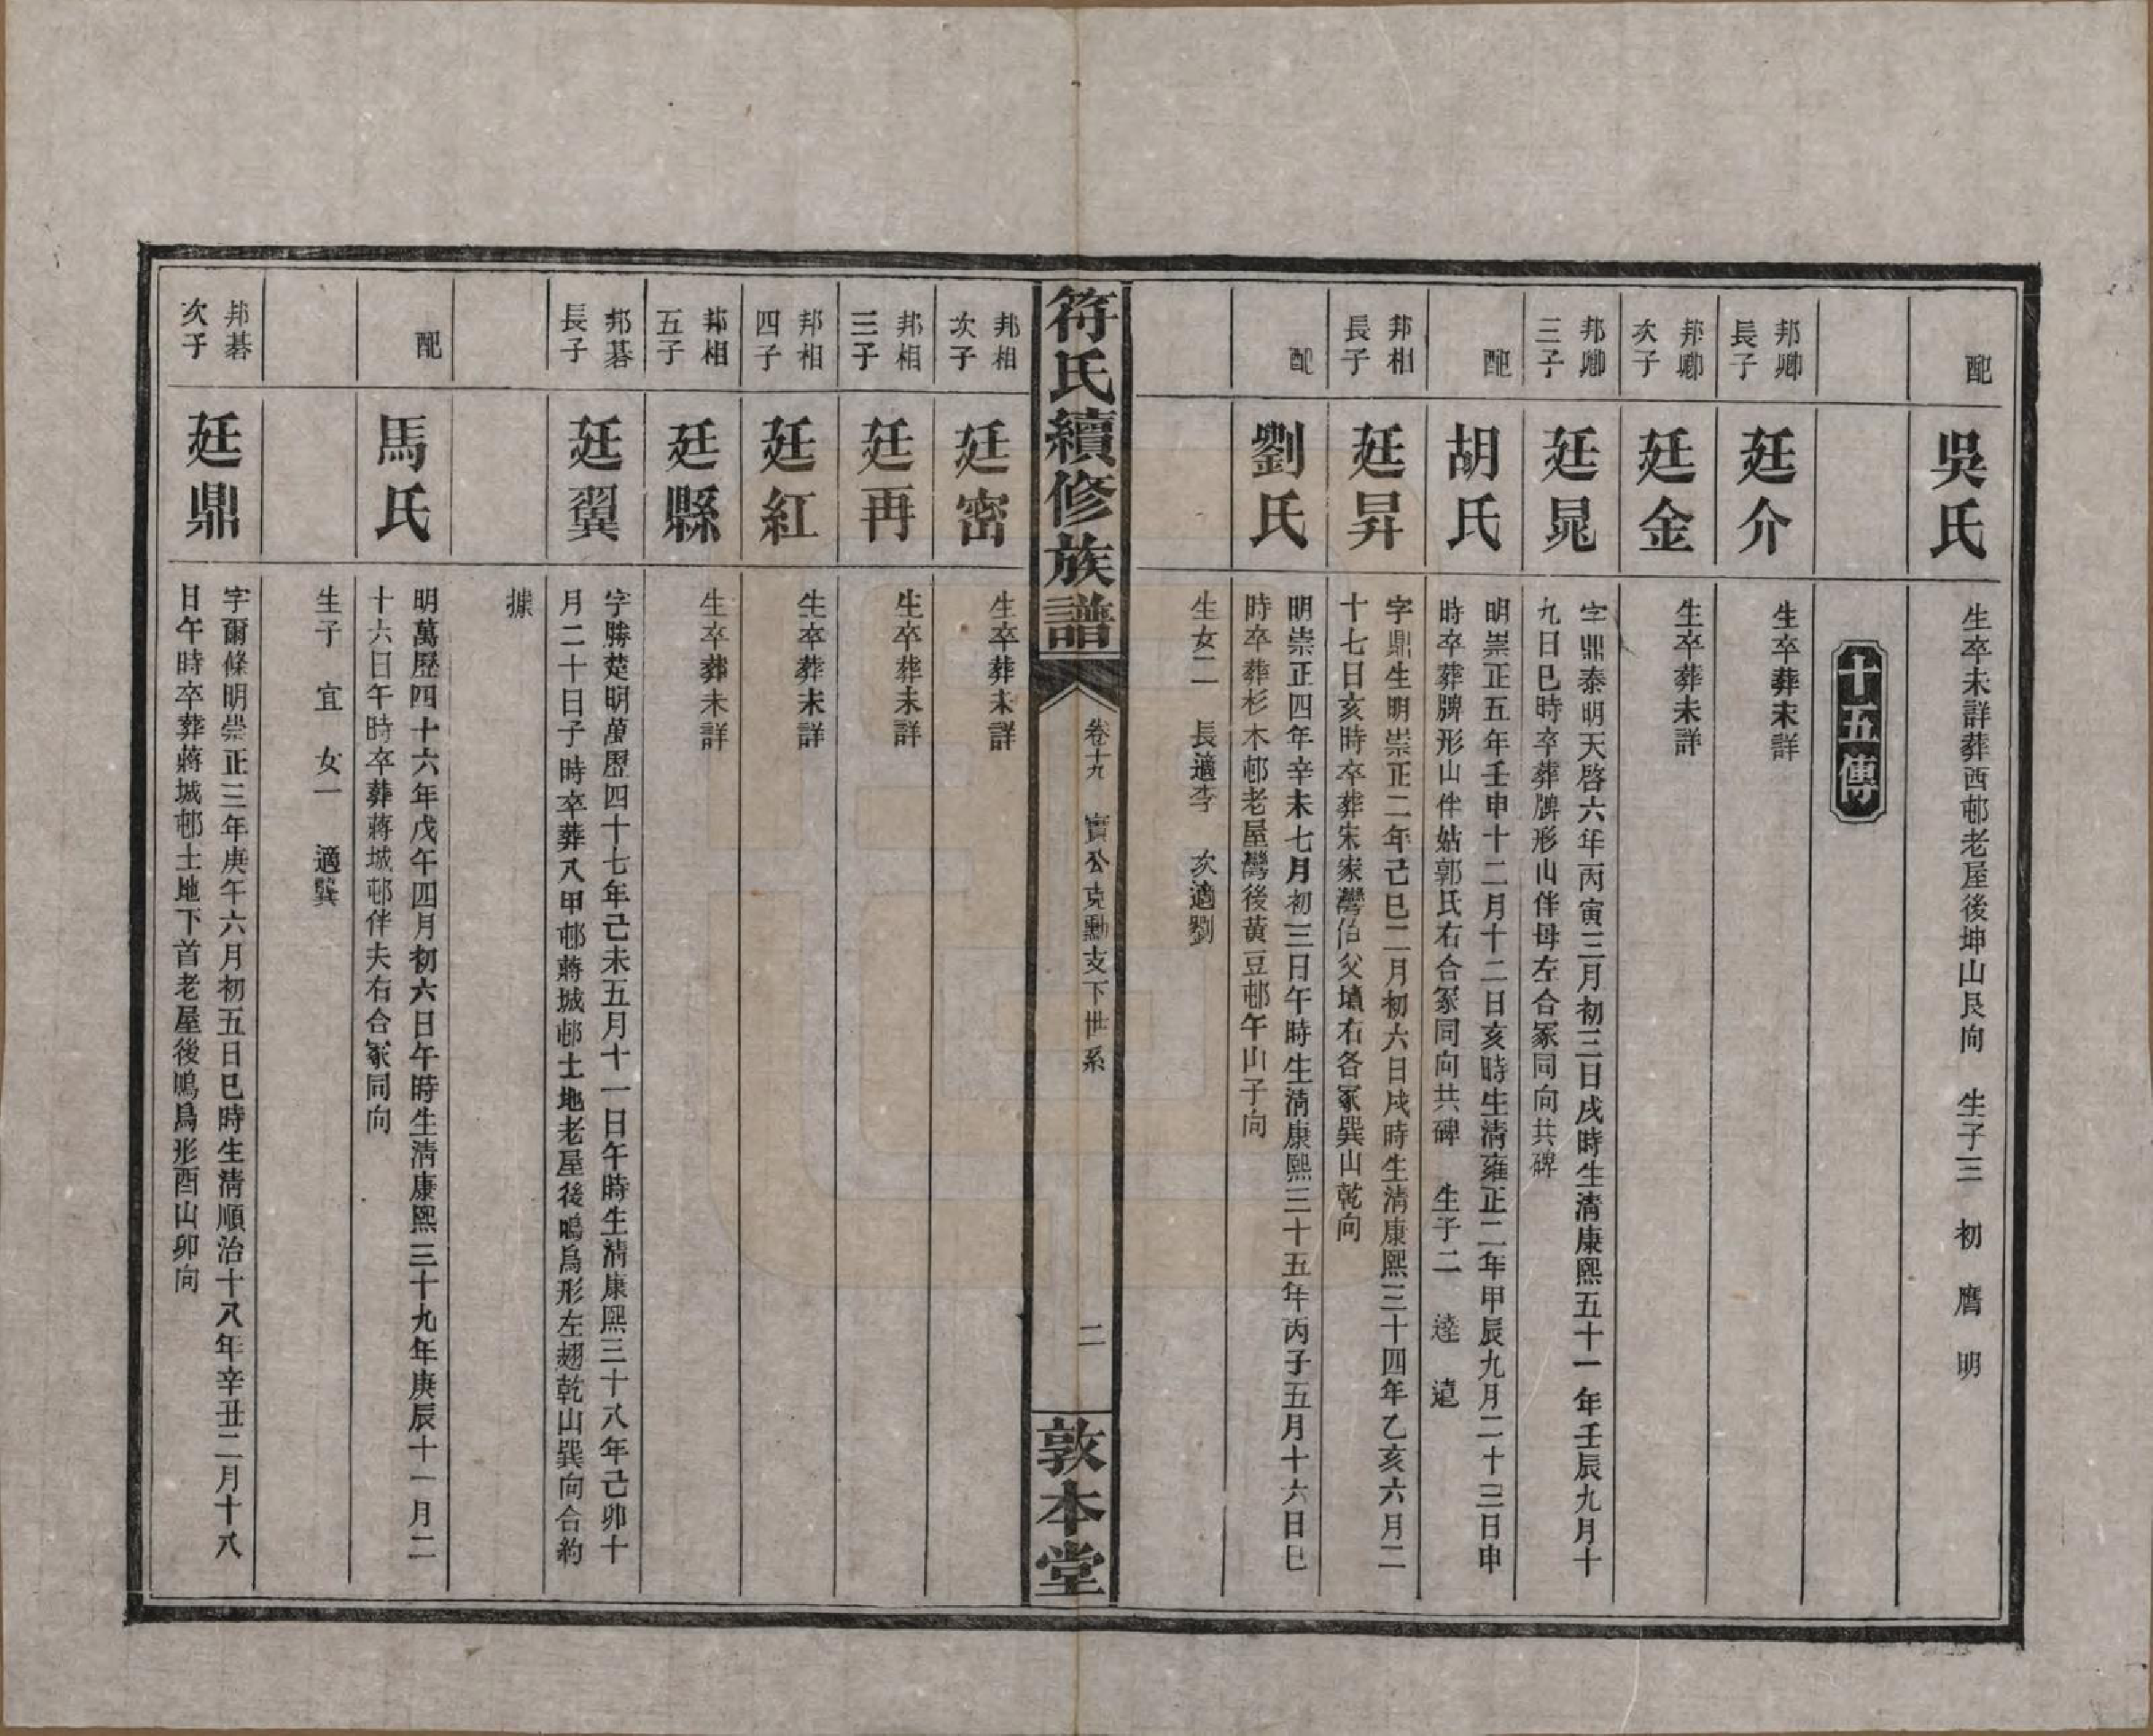 配
吳氏
生卒未詳葬西邨老屋後坤山艮向 生子三 初 膺 明
十五傳
邦卿長子
廷介
生卒葬未詳
邦卿次子
廷金
生卒葬未詳
邦卿三子
廷晁
字鼎泰明天啓六年丙寅三月初三日戌時生清康熙五十一年壬辰九月十
九日巳時卒葬牌形山伴母左合冢同向共碑
配
胡氏
明崇正五年壬申十二月十二日亥時生清雍正二年甲辰九月二十三日申
時卒葬牌形山伴姑郭氏右合冢同向共碑 生子二 達 遠
邦相長子
廷昇
字鼎生明崇正二年己巳二月初六日戌時生清康熙三十四年乙亥六月二
十七日亥時卒葬宋家灣伯父墳右各冢巽山乾向
配
劉氏
明崇正四年辛未七月初三日午時生清康熙三十五年丙子五月十六日巳
時卒葬杉木邨老屋灣後黃豆邨午山子向
生女二 長適李 次適劉
符氏續修族譜
卷十九 寶公克勳支下世系
二
敦本堂
邦相次子
廷密
生卒葬未詳
邦相三子
廷再
生卒葬未詳
邦相四子
廷紅
生卒葬未詳
邦相五子
廷縣
生卒葬未詳
邦碁長子
廷翼
字勝楚明萬歷四十七年己未五月十一日午時生清康熙三十八年己卯十
月二十日子時卒葬八甲邨蔣城邨土地老屋後鳴鳥形左翅乾山巽向合約
據
配
馬氏
明萬歷四十六年戊午四月初六日午時生清康熙三十九年庚辰十一月二
十六日午時卒葬蔣城邨伴夫右合冢同向
生子 宜 女一 適龔
邦碁次子
廷鼎
字爾條明崇正三年庚午六月初五日巳時生清順治十八年辛丑二月十八
日午時卒葬蔣城邨土地下首老屋後鳴鳥形酉山卯向